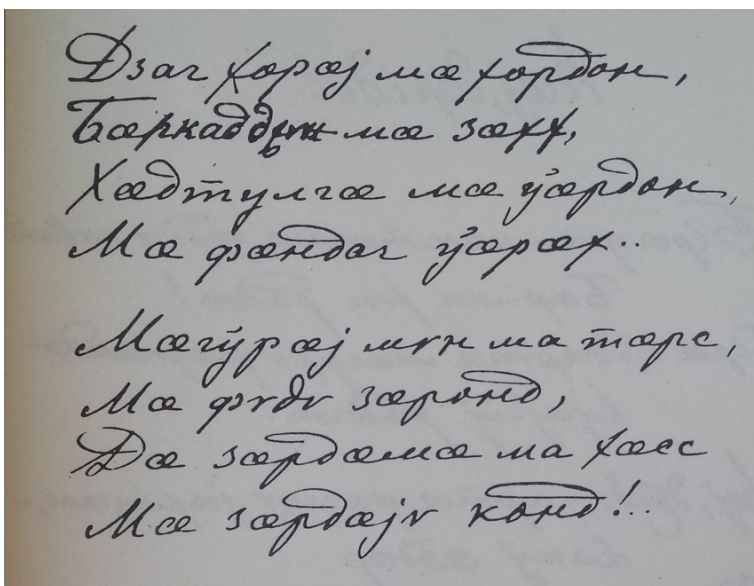 Дзаг хорæј мæ хордон,
Бæркаддѵн мæ зæхх,
Хæдтулгæ мæ ўæрдон,
Мæ фæндаг ўæрæх..
Мæгўрæј мѵн ма тæрс,
Мæ фѵдѵ зæронд,
Дæ зæрдæмæ ма хæсс
Мæ зæрдæјѵ конд!..